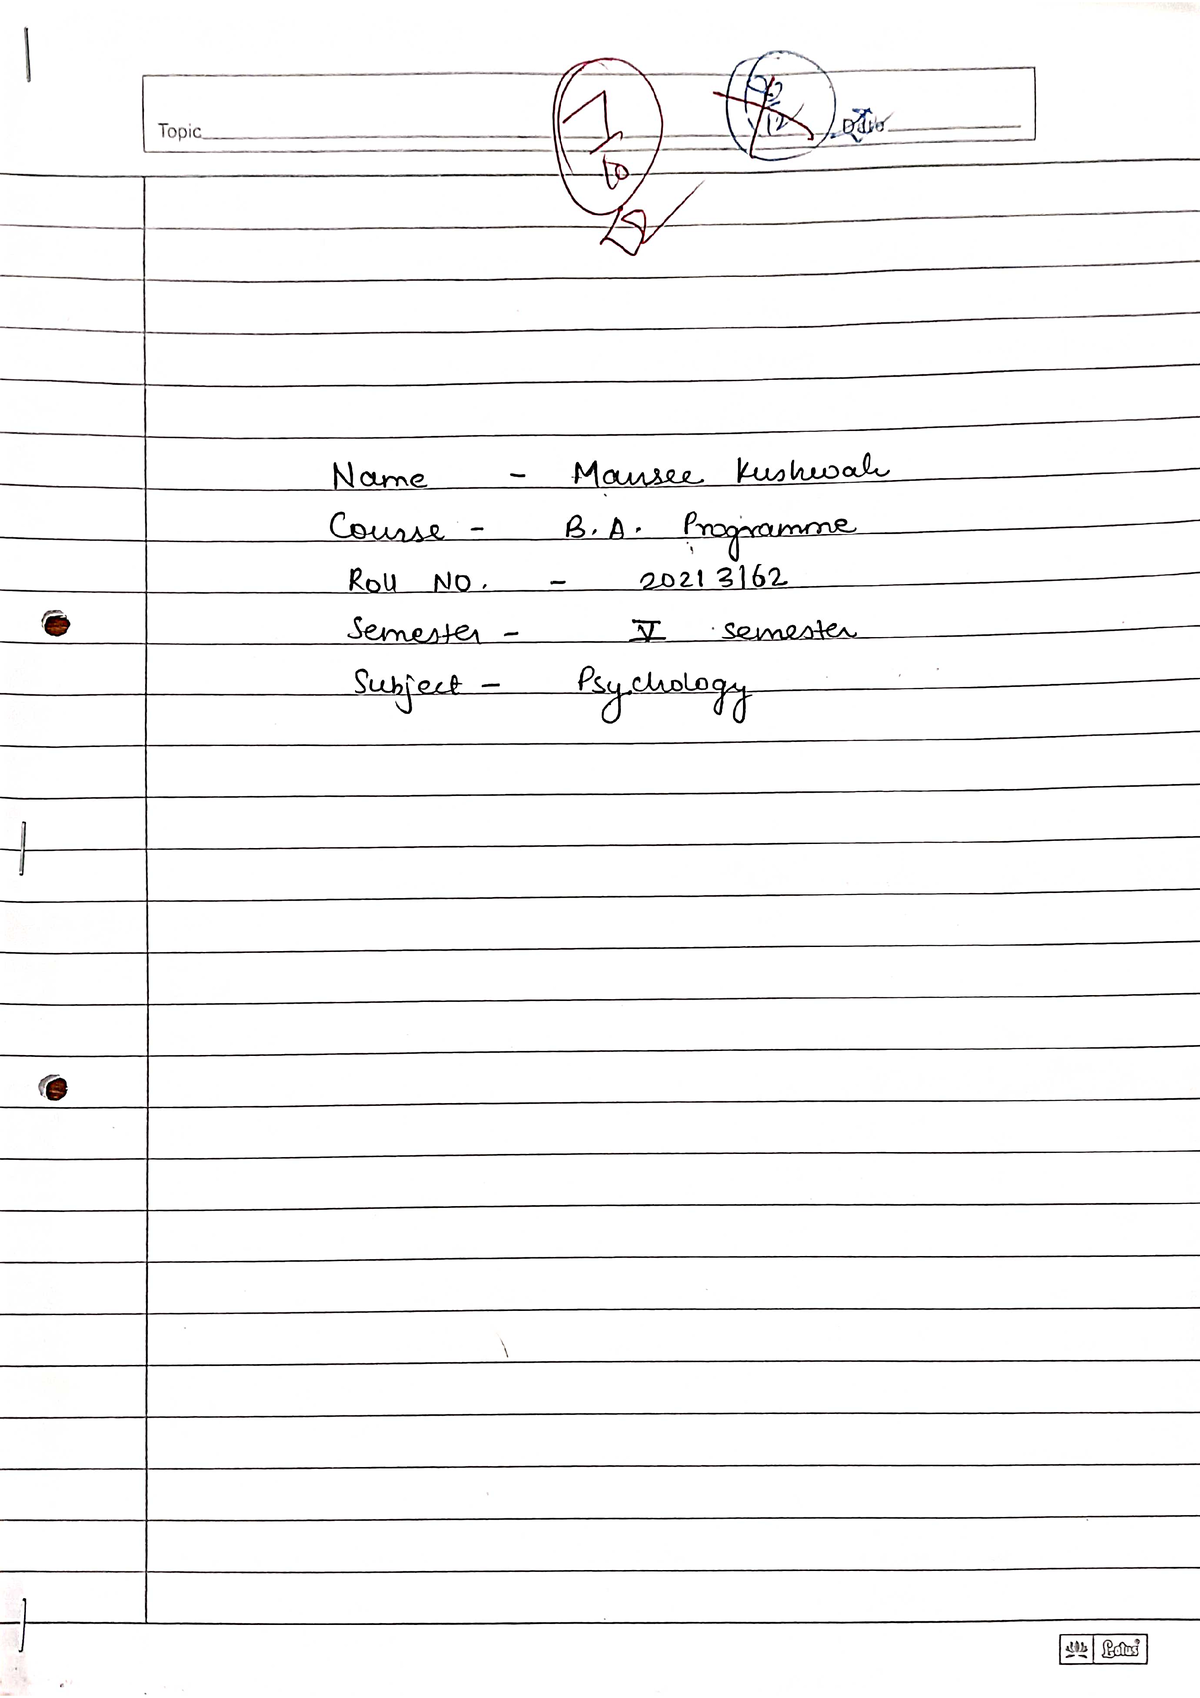 Topic
Date
10
Name - Mansee Kushwah
Course - B.A. Programme
Roll NO. - 20213162
Semester - V semester
Subject - Psychology
Lotus